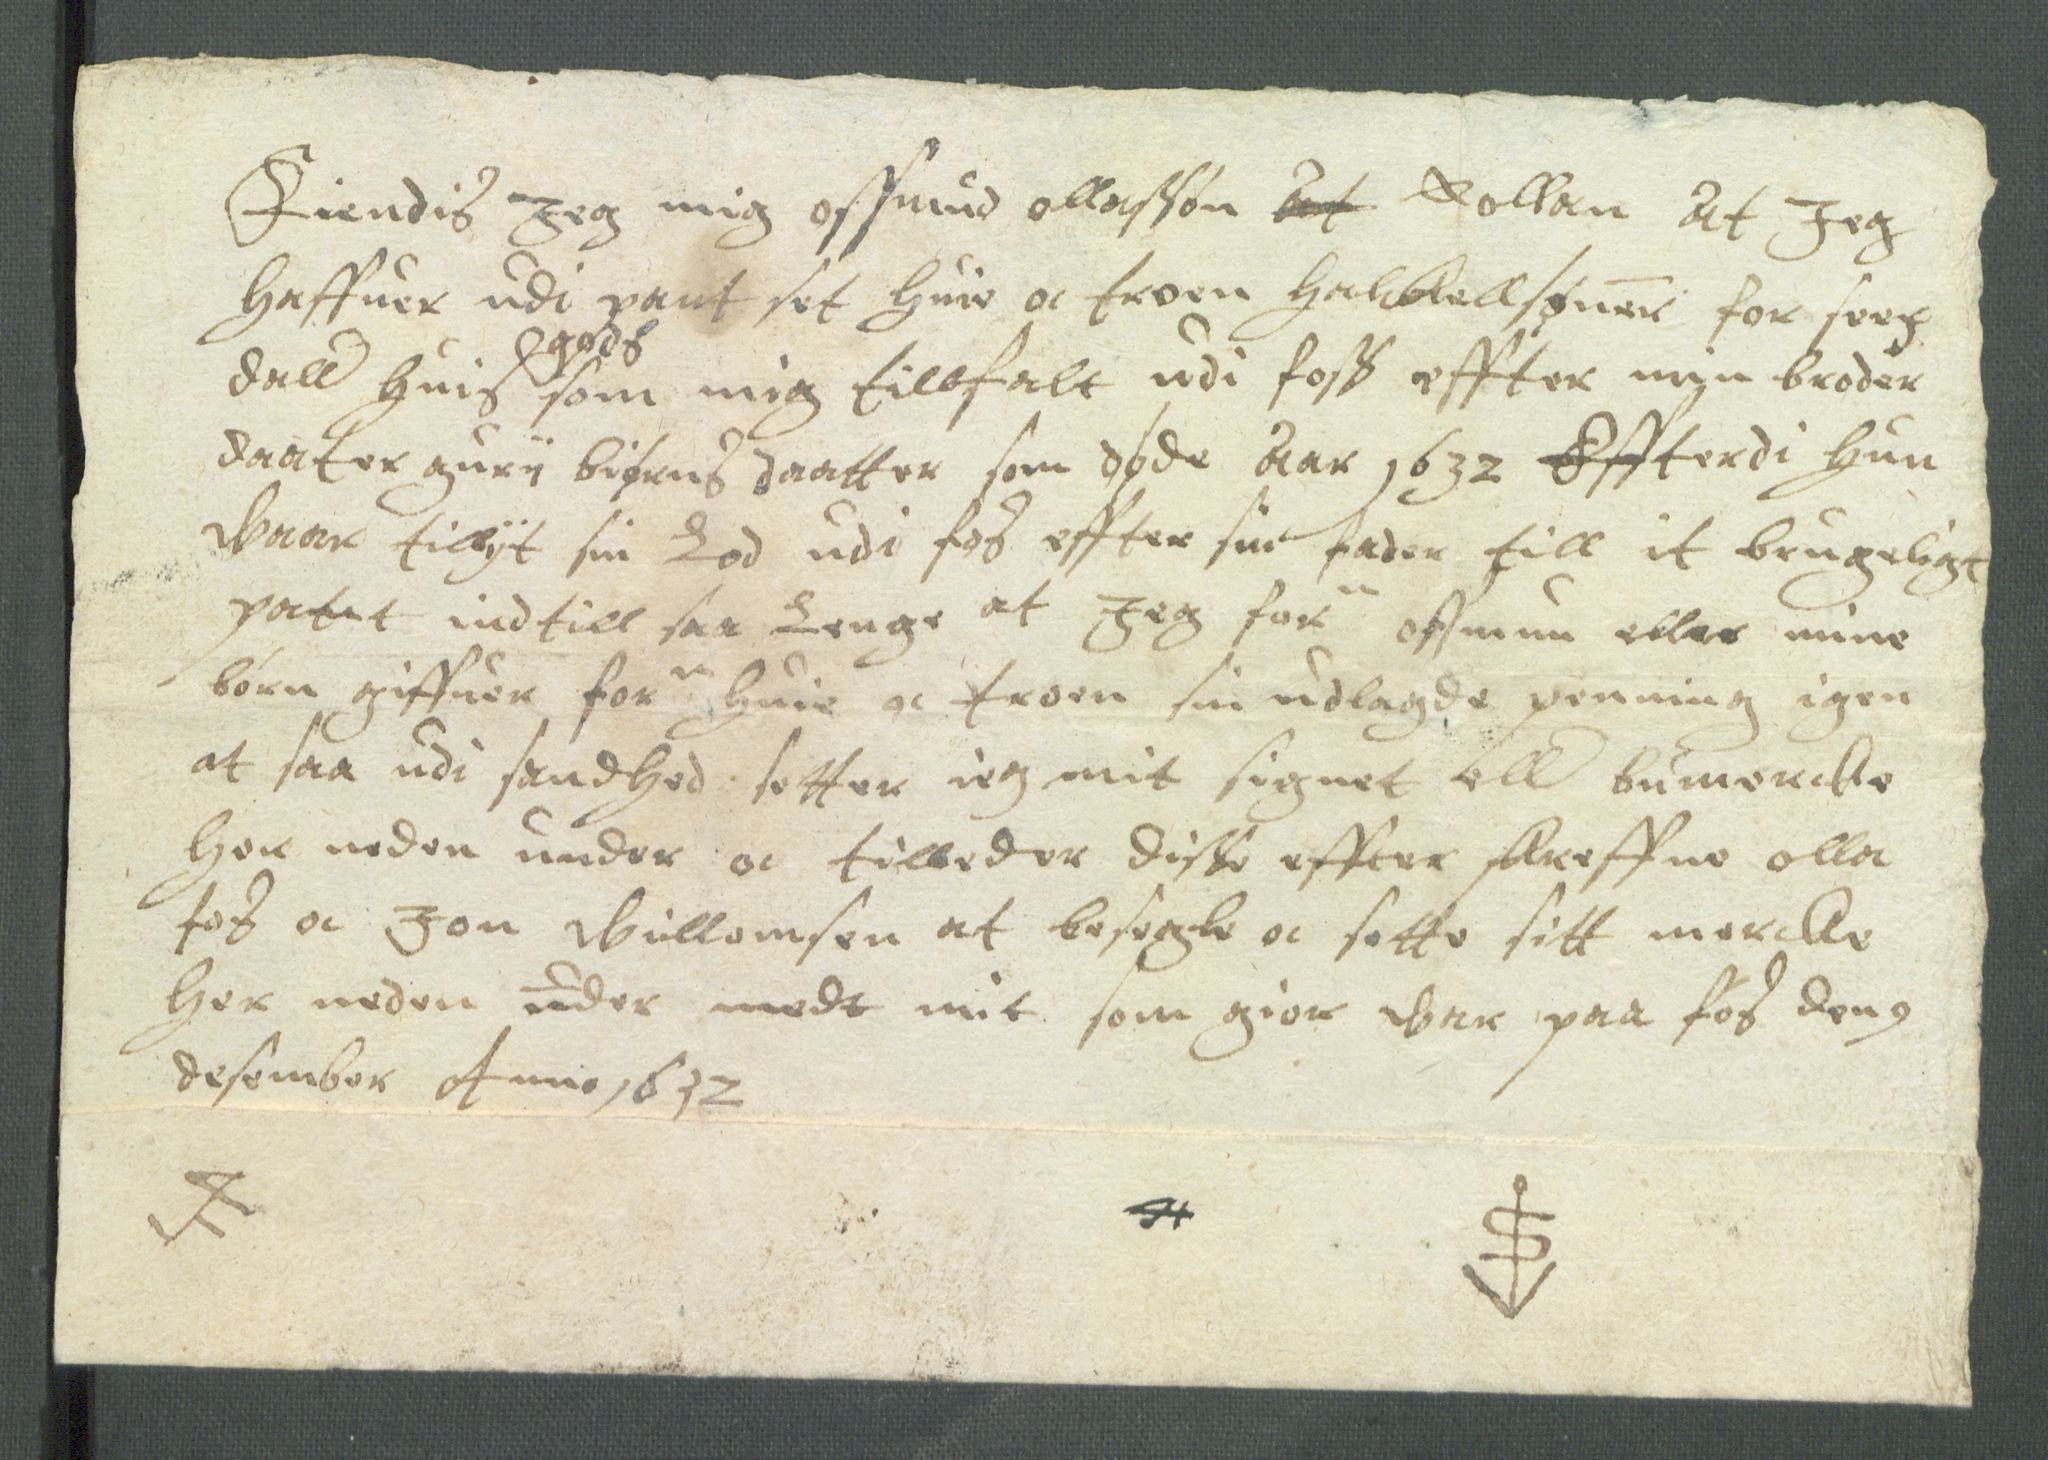 Kiendis Jeg mig ossmud ollasszøn at Rollan At Jeg
Haffuer udi pant set huie oc troen halkellsøner for sex
dall huis gods som mig tillfalt udi foss effter min broder
daater gurij biørns daatter som døde Aar 1632 Effterdi hun
waar tillyt sin Lod udi fos effter sin fader till it brugeligt
patnt indtill saa Lenge at Jeg forn osmun eller mine
børn giffuer forn huie oc troen sin udlagde penning igen
at saa udi sandhed setter ieg mit signet ell bumercke
her neden under oc tilbeder disse effter skreffne olla
fos oc Jon Willomsen at besegle oc sette sitt mercke
her neden under medt mit som giør war paa fos den 9
desember Anno 1632